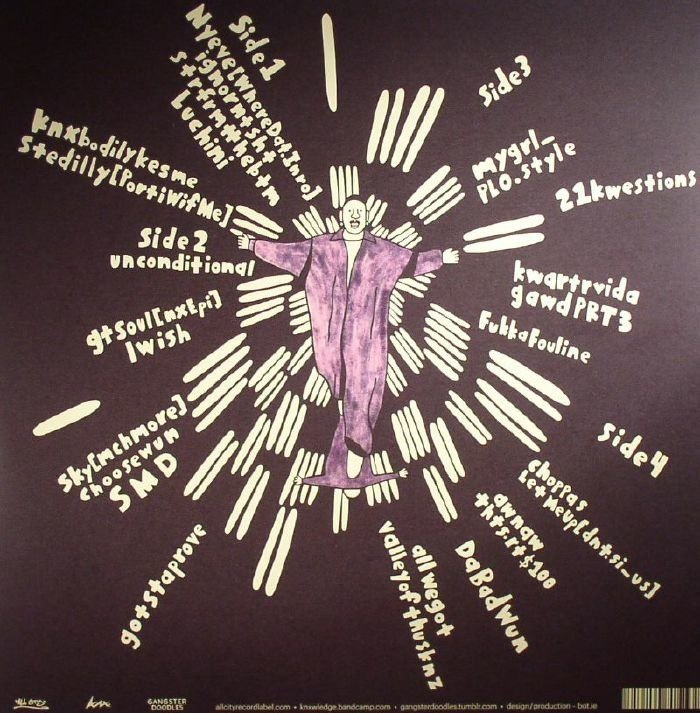 Side1
Nyeve[WhereDat.Inro]
ignorntsht
strfrm#hebtm
Luchini
knxbodilykesme
Stedilly[PortiWifMe]
Side2
unconditional
gtSoul[nxtEpi]
Iwish
Sky[mchmore]
choosewun
SMD
gotstaprove
Side3
mygrl_
PLO.style
21kwestions
kwartrvida
gawdPRT3
FukkaFouline
Side4
choppas
LetMeup[dnt.si_us]
awnaw
thts.rt$100
DaBadWun
allwegot
valleyofthusknz
GANGSTER
DOODLES
allcityrecordlabel.com • knxwledge.bandcamp.com • gangsterdoodles.tumblr.com • design/production - bot.ie